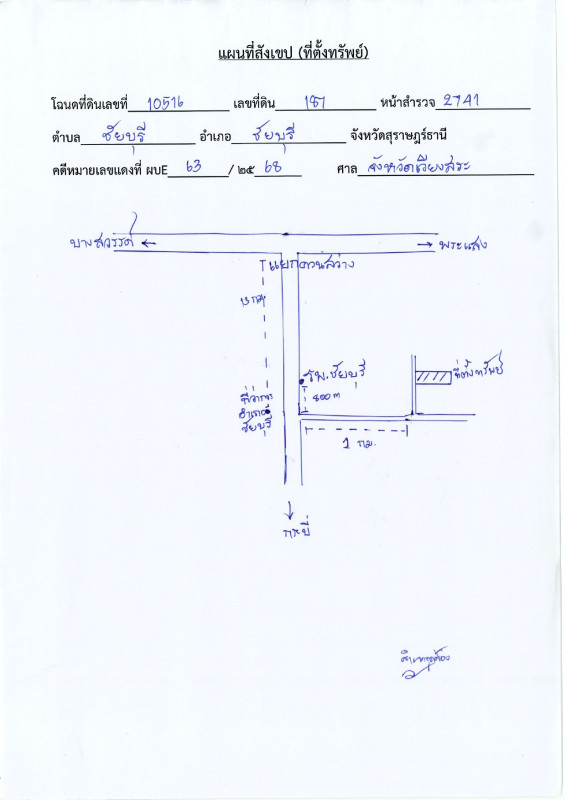 แผนที่สังเขป (ที่ตั้งทรัพย์)
โฉนดที่ดินเลขที่ 10516 เลขที่ดิน 187 หน้าสำรวจ 2741
ตำบล ชัยบุรี อำเภอ ชัยบุรี จังหวัดสุราษฎร์ธานี
คดีหมายเลขแดงที่ ผบE 63 / ๒๕ 68 ศาล จังหวัดเวียงสระ
บางสวรรค์ ← → พระแสง
แยกควนสว่าง
13 กม
รพ.ชัยบุรี
800 m
ที่ตั้งทรัพย์
ที่ว่าการ
อำเภอ
ชัยบุรี
1 กม.
กระบี่
สำเนาถูกต้อง